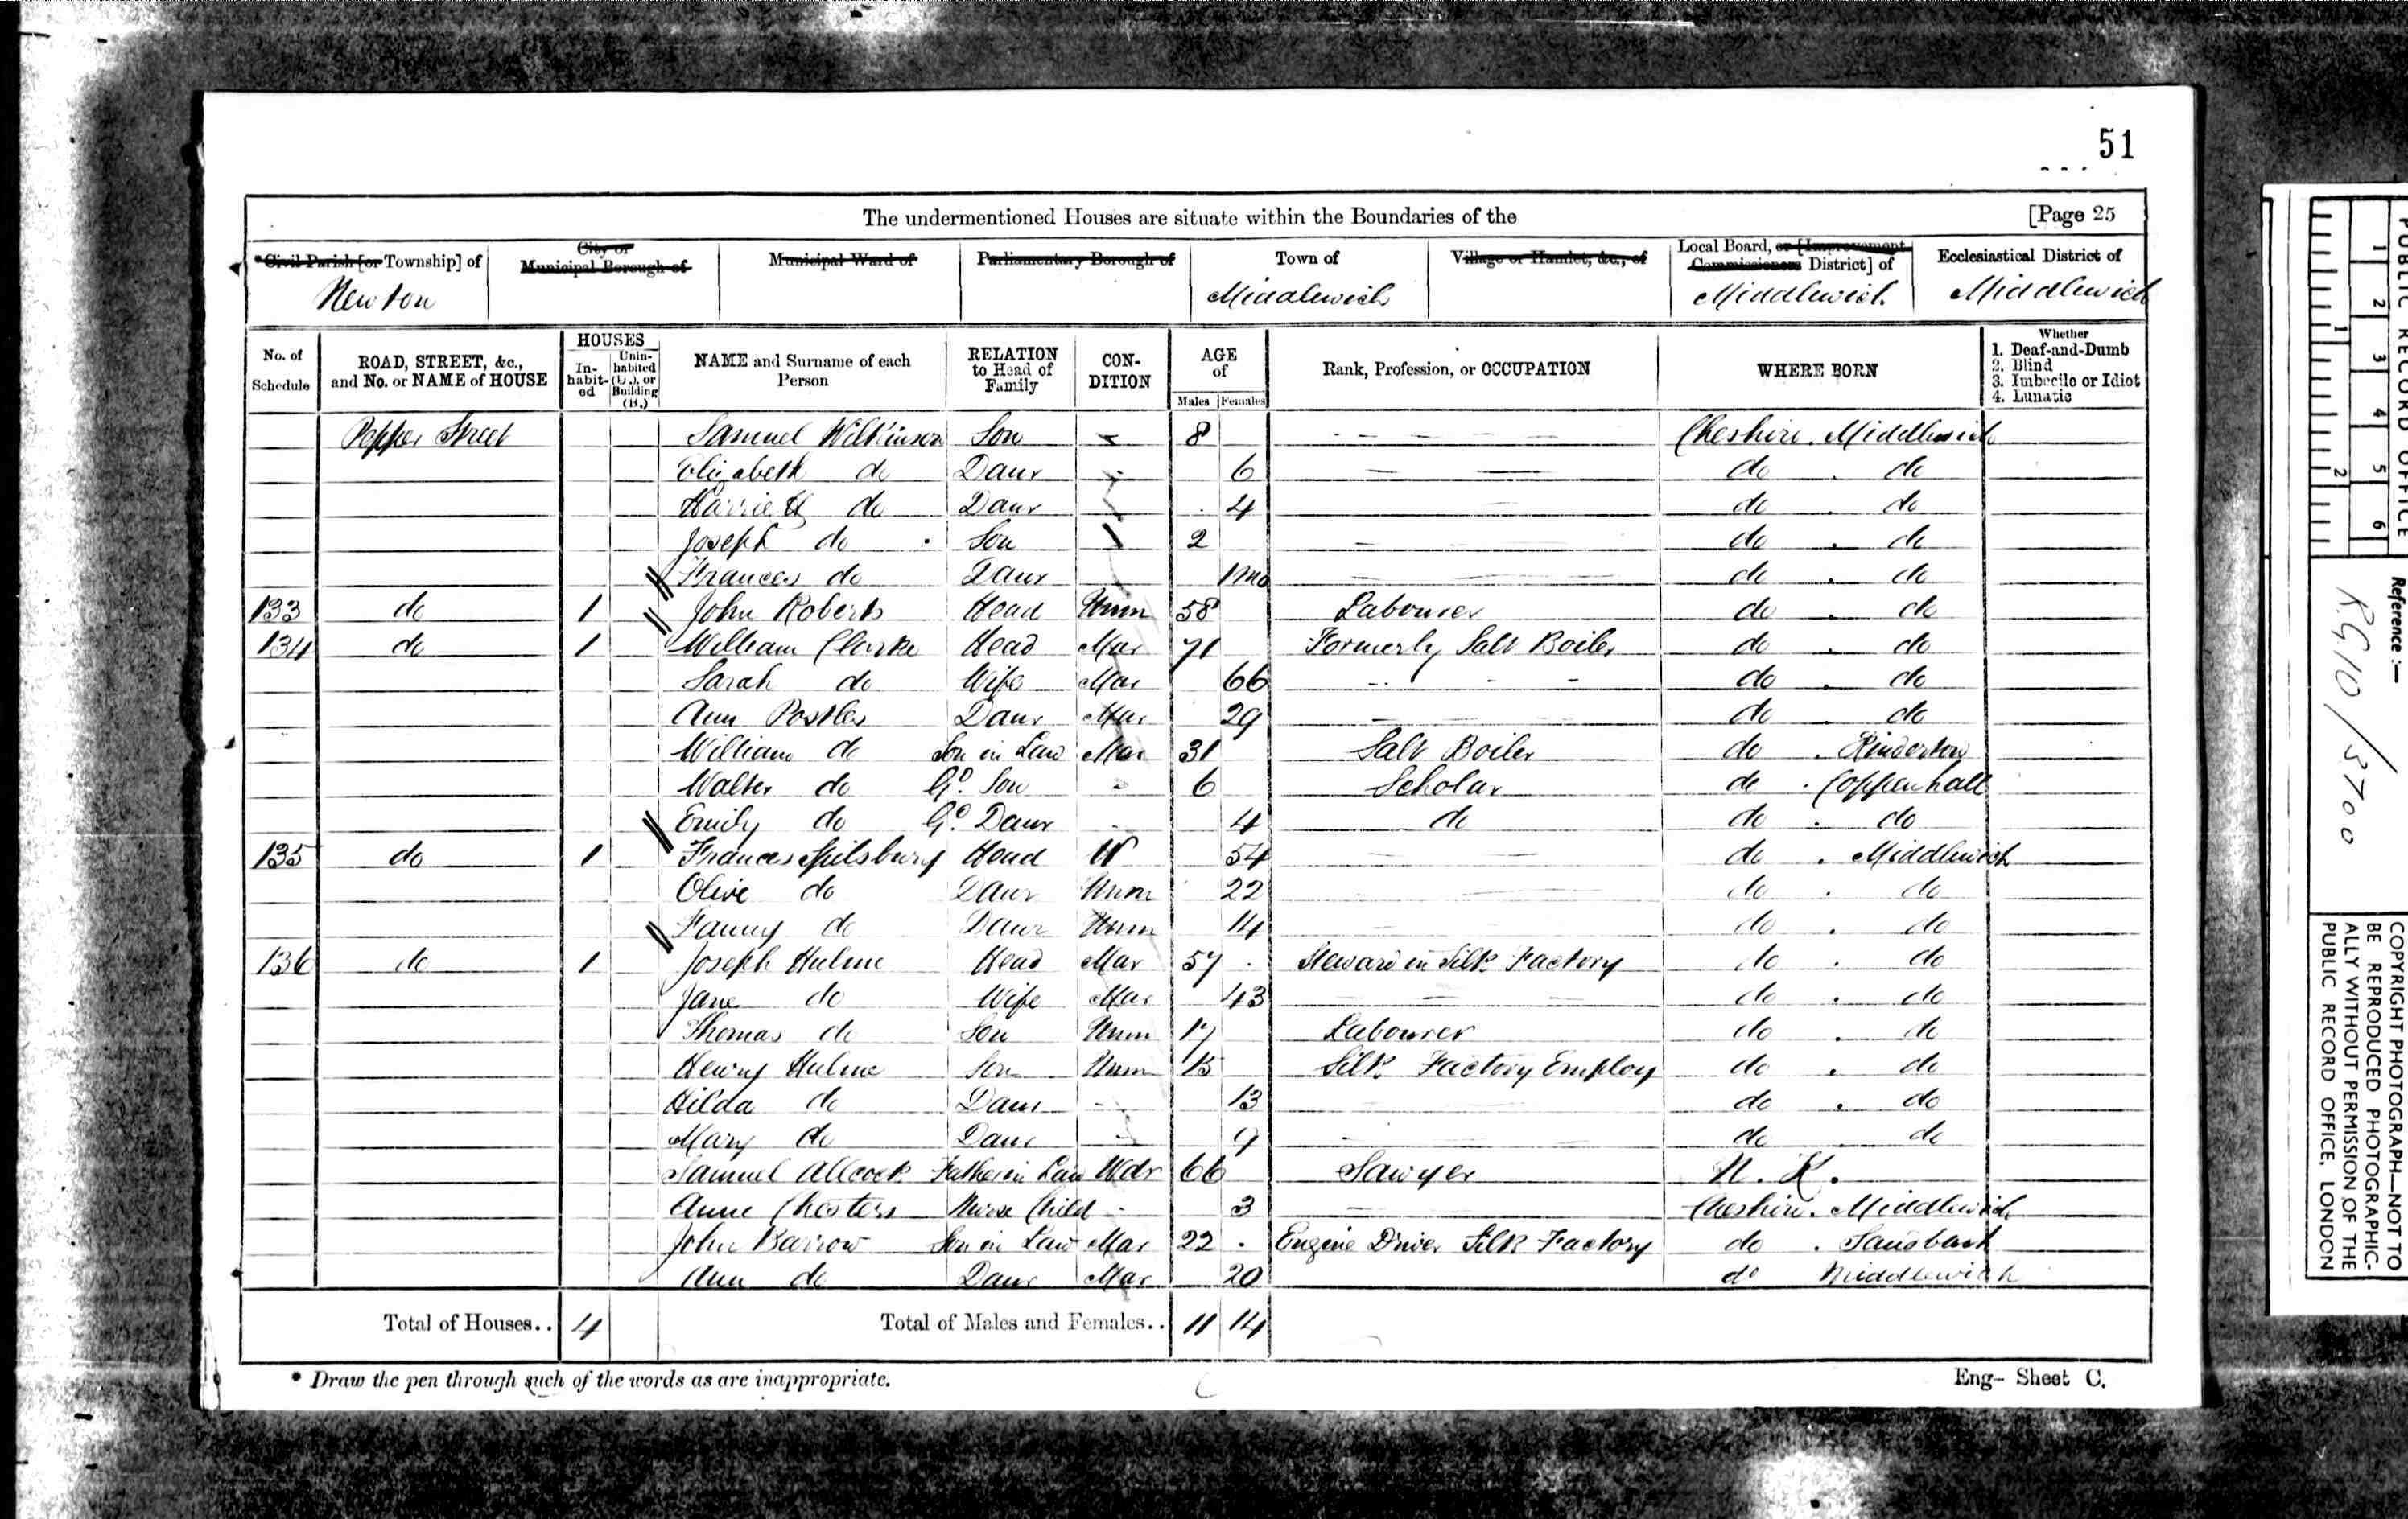 51
The undermentioned Houses are situate within the Boundaries of the [Page 25
*Civil Parish [or Township] of City or Municipal Borough of Municipal Ward of Parliamentary Borough of Town of Village or Hamlet, &c., of Local Board, or [Improvement Commissioners District] of Ecclesiastical District of
Newton Middlewich Middlewich Middlewich
No. of Schedule ROAD, STREET, &c., and No. or NAME of HOUSE HOUSES Inhabited Uninhabited (U.), or Building (B.) NAME and Surname of each Person RELATION to Head of Family CONDITION AGE of Males Females Rank, Profession, or OCCUPATION WHERE BORN Whether 1. Deaf-and-Dumb 2. Blind 3. Imbecile or Idiot 4. Lunatic
Pepper Street Samuel Wilkinson Son 8 Cheshire. Middlewich
Elizabeth do Daur 6 do . do
Harriett do Daur 4 do . do
Joseph do Son 2 do . do
Frances do Daur 1mo do . do
133 do 1 John Roberts Head Unm 58 Labourer do . do
134 do 1 William Clarke Head Mar 71 Formerly Salt Boiler do . do
Sarah do Wife Mar 66 do . do
Ann Postles Daur Mar 29 do . do
William do Son in Law Mar 31 Salt Boiler do . Kinderton
Walter do Gd. Son 6 Scholar do . Coppenhall
Emily do Gd. Daur 4 do do . do
135 do 1 Frances Spilsbury Head W 54 do . Middlewich
Olive do Daur Unm 22 do . do
Fanny do Daur Unm 14 do . do
136 do 1 Joseph Hulme Head Mar 57 Steward in Silk Factory do . do
Jane do Wife Mar 43 do . do
Thomas do Son Unm 17 Labourer do . do
Henry Hulme Son Unm 15 Silk Factory Employ do . do
Hilda do Daur 13 do . do
Mary do Daur 9 do do
Samuel Allcock Father in Law Wdr 66 Sawyer N. K.
Anne Chesters Nurse Child 3 Cheshire. Middlewich
John Barrow Son in Law Mar 22 Engine Driver Silk Factory do . Sandbach
Ann do Daur Mar 20 do Middlewich
Total of Houses.. 4 Total of Males and Females.. 11 14
* Draw the pen through such of the words as are inappropriate. Eng- Sheet C.
PUBLIC RECORD OFFICE
1 2 3 4 5 6
1 2
Reference :—
RG 10 / 3700
COPYRIGHT PHOTOGRAPH—NOT TO
BE REPRODUCED PHOTOGRAPHIC-
ALLY WITHOUT PERMISSION OF THE
PUBLIC RECORD OFFICE, LONDON